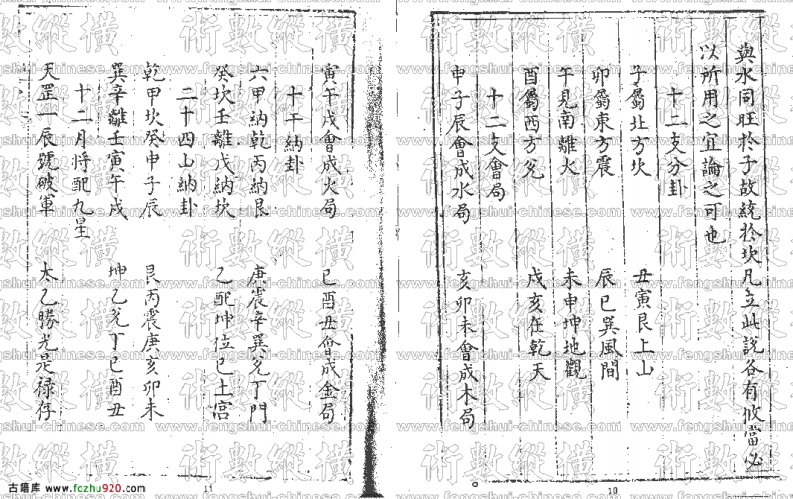 與水同旺於子故統於坎凡立此說各有攸當必
以所用之宜論之可也
十二支分卦
子屬北方坎 丑寅艮上山
卯屬東方震 辰巳巽風間
午見南離火 未申坤地觀
酉屬西方兌 戌亥在乾天
十二支會局
申子辰會成水局 亥卯未會成木局
10
寅午戌會成火局 巳酉丑會成金局
十干納卦
六甲納乾丙納艮 庚震辛巽兌丁門
癸坎壬離戊納坎 乙配坤位己土宮
二十四山納卦
乾甲坎癸申子辰 艮丙震庚亥卯未
巽辛離壬寅午戌 坤乙兌丁巳酉丑
十二月將配九星
天罡一辰號破軍 太乙勝光是祿存
11
術數縱橫
www.fengshui-chinese.com
古籍库 www.fozhu920.com